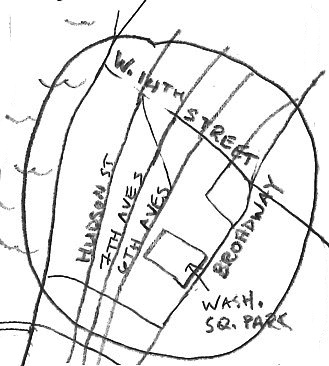 W. 14TH STREET
HUDSON ST
7TH AVES
6TH AVES
BROADWAY
WASH.
SQ. PARK